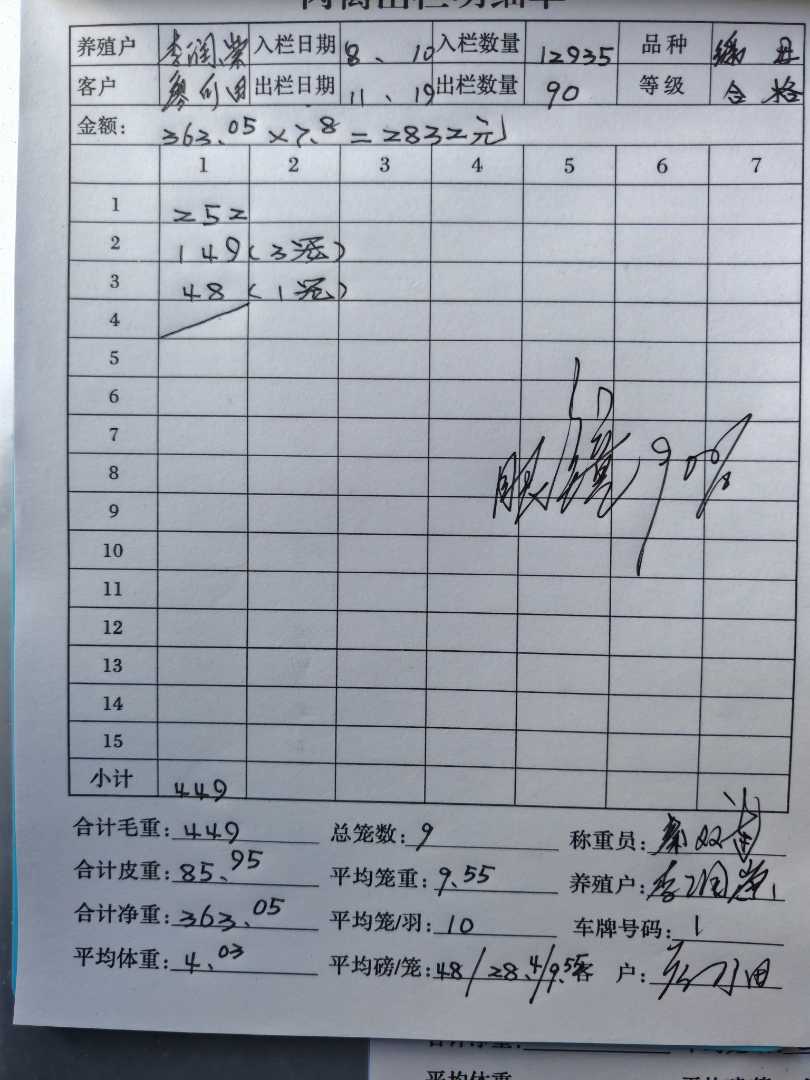 养殖户 李润棠 入栏日期 8、10 入栏数量 12935 品种
客户 出栏日期 11、19 出栏数量 90 等级 合格
金额: 363.05×7.8=2832元
1 2 3 4 5 6 7
1 252
2 149(3笼)
3 48(1笼)
4
5
6
7
8
9
10
11
12
13
14
15
小计 449
合计毛重: 449 总笼数: 9 称重员:
合计皮重: 85.95 平均笼重: 9.55 养殖户: 李润棠
合计净重: 363.05 平均笼/羽: 10 车牌号码: 1
平均体重: 4.03 平均磅/笼: 48/28.4/9.55 客 户: